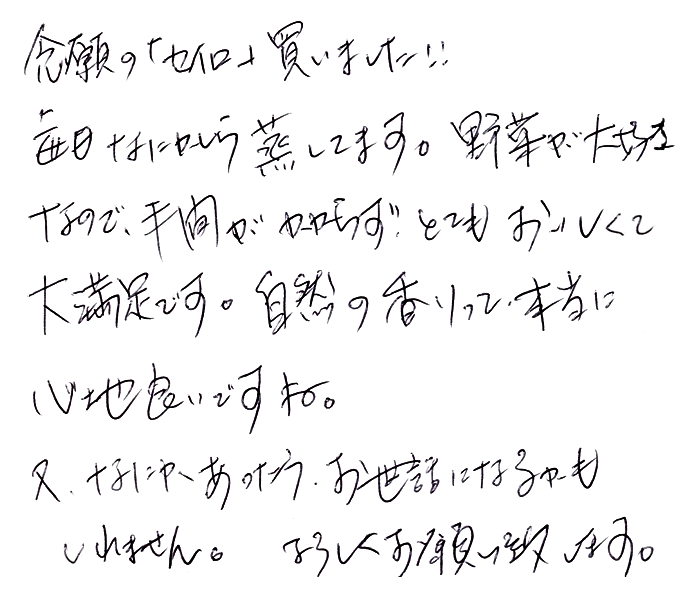 念願の「セイロ」買いました!!
毎日なにかしら蒸してます。野菜が大好き
なので、手間がかからず、とてもおいしくて
大満足です。自然の香りって、本当に
心地良いですね。
又、なにかあったら、お世話になるかも
しれません。 よろしくお願い致します。